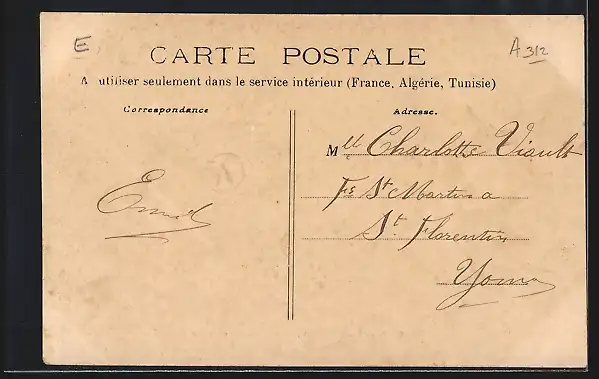 E
A 312
CARTE POSTALE
A utiliser seulement dans le service intérieur (France, Algérie, Tunisie)
Correspondance
Adresse.
Mlle Charlotte Viault
Fg St Martin a
St. Florentin
Yonne
Emil